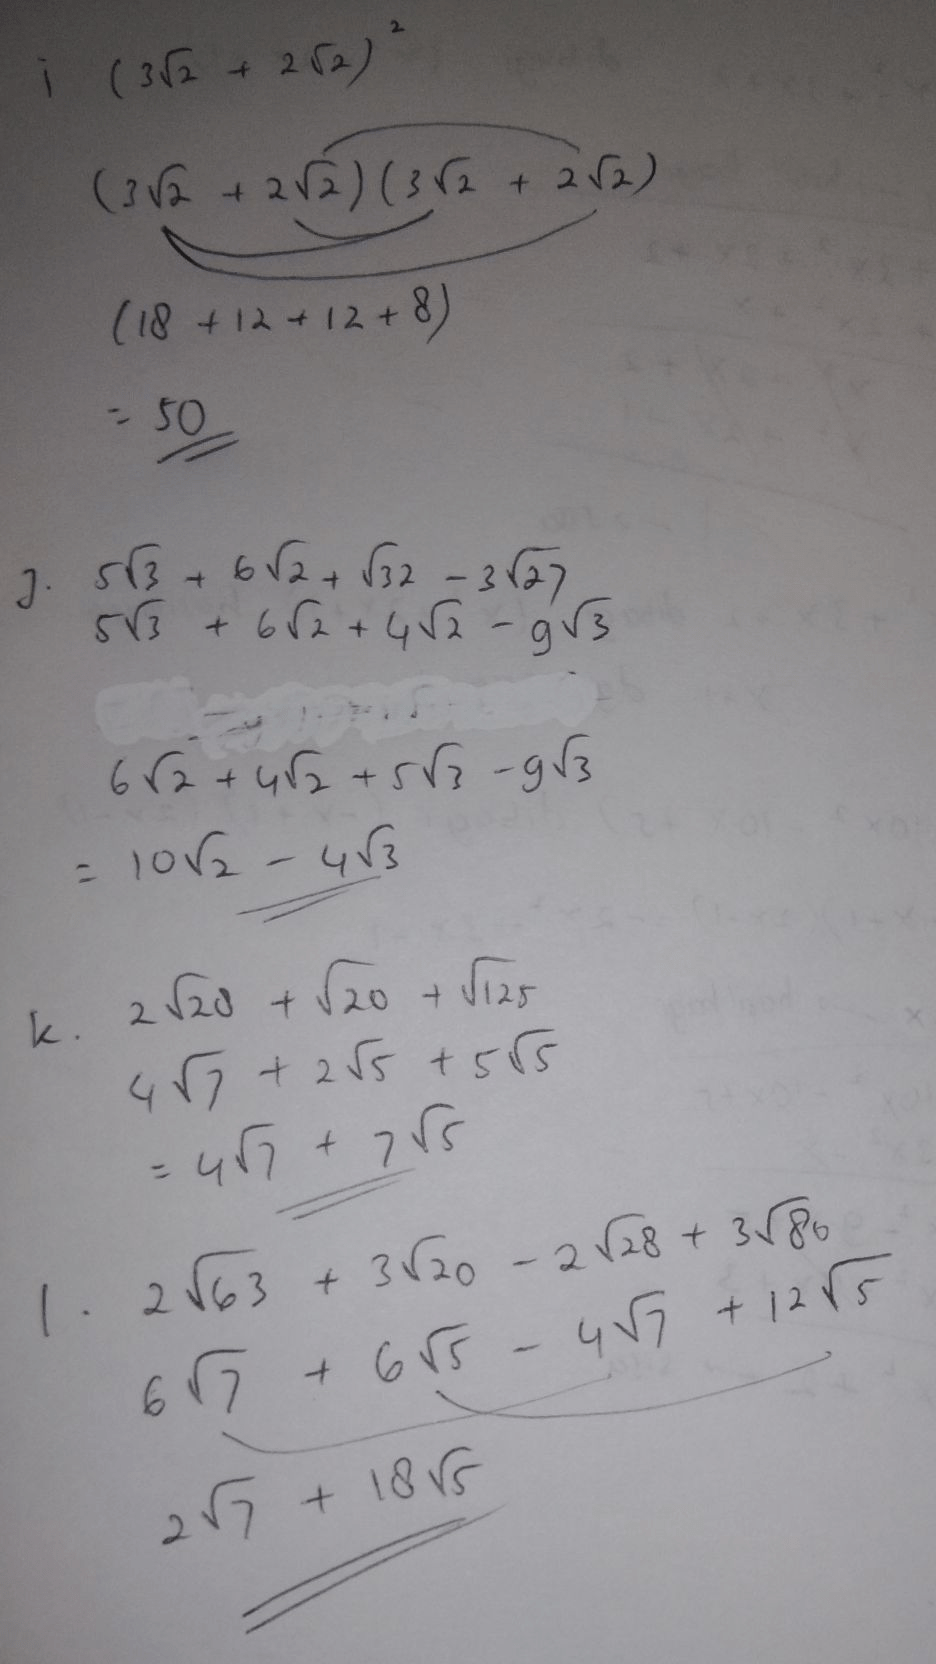 i (3√2 + 2√2)²
(3√2 + 2√2)(3√2 + 2√2)
(18 + 12 + 12 + 8)
= 50
J. 5√3 + 6√2 + √32 - 3√27
5√3 + 6√2 + 4√2 - 9√3
6√2 + 4√2 + 5√3 - 9√3
= 10√2 - 4√3
k. 2√28 + √20 + √125
4√7 + 2√5 + 5√5
= 4√7 + 7√5
l. 2√63 + 3√20 - 2√28 + 3√80
6√7 + 6√5 - 4√7 + 12√5
2√7 + 18√5